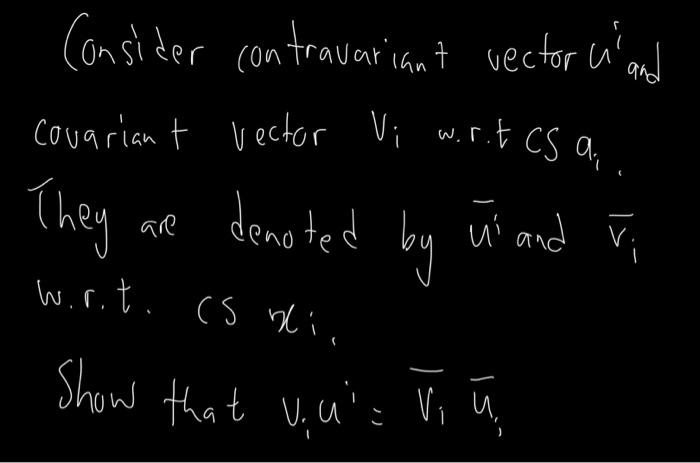 Consider contravariant vector uⁱ and
covariant vector vᵢ w.r.t CS aᵢ.
They are denoted by ūⁱ and v̄ᵢ
w.r.t. CS xᵢ.
Show that vᵢuⁱ = v̄ᵢ ūᵢ